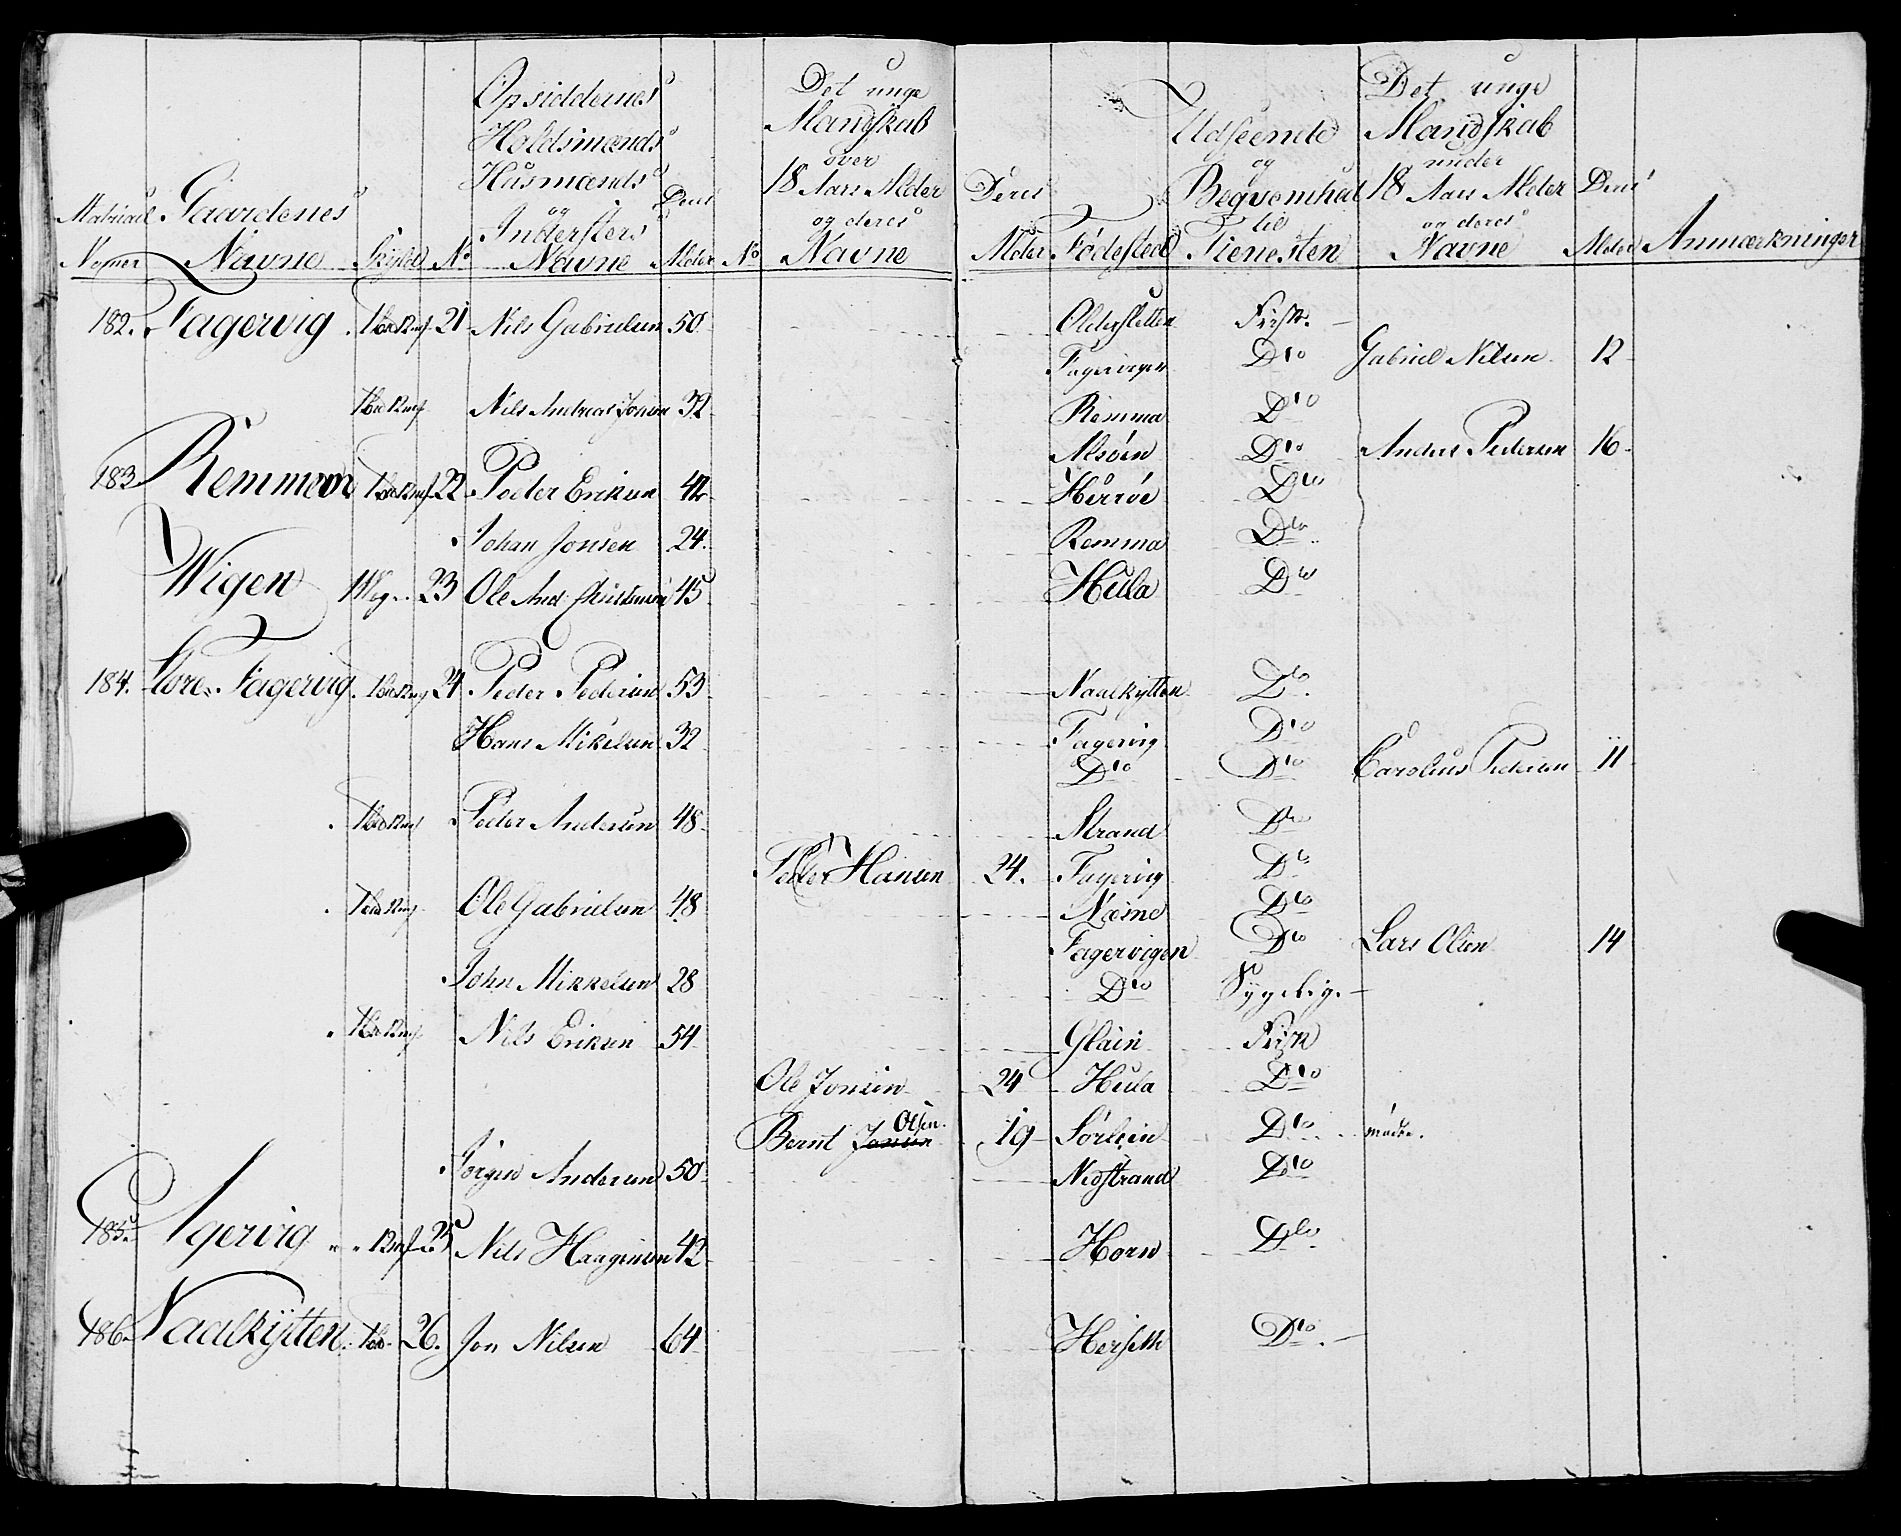 Matricul Gaardenes Skyld No Opsiddernes Holdsmænds Husmænds og Indersters Navne Deres Alder No Det unge Mandskab over 18 Aars Alder og deres Navne Deres Alder Fødested Udseende og Beqvemhed til Tienesten Det unge Mandskab under 18 Aars Alder og deres Navne Deres Alder Anmærkninger
Navne
182. Fagervig 21 Nils Gabrielsen 50 Oldersletten Frisk.
Fagervigen Dto Gabriel Nilsen 12
Nils Andreas Jonsen 32 Remma Dto
Alsöen Dto Anders Pedersen 16
183 Remmen 22 Peder Eriksen 42 Herröe Dto
Johan Jonsen 24. Remma Dto
Wigen 1 Wog 23 Ole And: Christensen 45 Hula Dto
184. Store Fagervig 24 Peder Pedersen 53 Naalskytten Dto
Hans Mikelsen 32 Fagervig Dto
Dto Dto Carolius Pedersen 11
Peder Andersen 48 Strand Dto
Peder Hansen 24. Fagervig Dto
Ole Gabrielsen 48 Næsne Dto
Fagervigen Dto Lars Olsen 14
John Mikkelsen 28 Dto Sygelig.
Nils Eriksen 54 Glein Frisk
Ole Jonsen 24 Hula Dto
Bernt Jonsen Olsen. 19 Sörlein Dto
Jörgen Andersen 50 Nedstrand Dto
185. Agervig 25 Nils Haagensen 42 Horn Dto
186. Naalskÿtten 26. Jon Nilsen 64 Herseth Dto